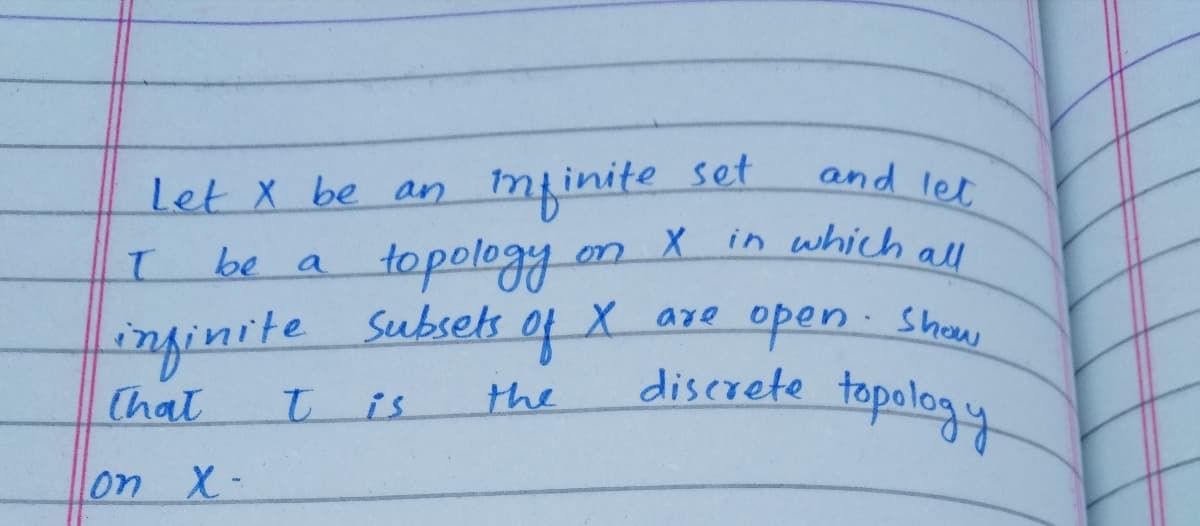 Let X be an infinite set and let
T be a topology on X in which all
infinite subsets of X are open. Show
that T is the discrete topology
on X.